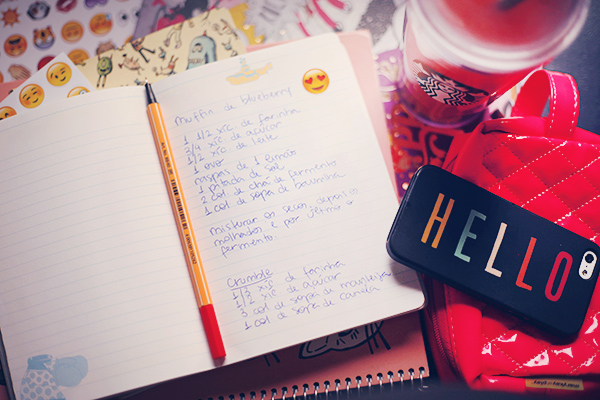 muffin de blueberry
1 1/2 xíc de farinha
3/4 xíc de açúcar
1/2 xíc de leite
1 ovo
raspas de 1 limão
1 pitada de sal
2 col de chá de fermento
1 col de sopa de baunilha
misturar os secos, depois os
molhados e por último o
fermento.
Crumble
1/3 xíc de farinha
1/2 xíc de açúcar
3 col de sopa de manteiga
1 col de sopa de canela
HELLO